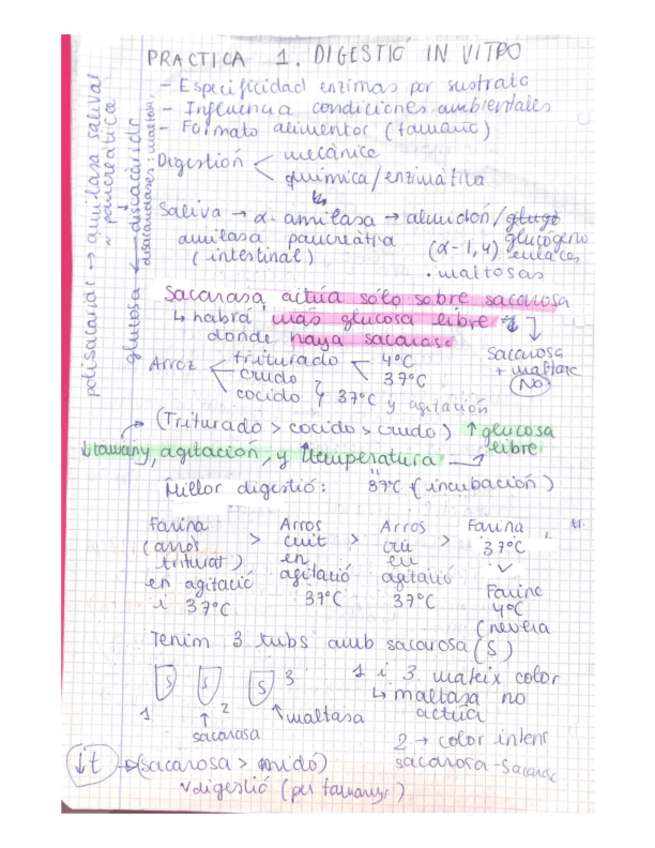 PRACTICA 1. DIGESTIÓ IN VITRO
- Especificidad enzimas por sustrato
- Influencia condiciones ambientales
- Formato alimentor (tamaño)
Digestión < mecánica
química/enzimàtica
Saliva → α-amilasa → almidón/
glucógeno
amilasa pancreàtica (α-1,4) enlaces
(intestinal) · maltosas
Sacarasa actúa sólo sobre sacarosa
↳ habrá más glucosa libre
donde haya sacarasa
Sacarosa
+ maltasa
(No)
Arroz < triturado < 4ºC
37ºC
crudo
cocido y 37ºC y agitación
(Triturado > cocido > crudo) ↑ glucosa
libre
↓tamany, agitación, y ↑temperatura
Millor digestió: 37ºC (incubación)
Farina > Arros > Arros > Farina
(arròs cuit cru 37ºC
triturat) en en
en agitació agitació agitació
i 37ºC 37ºC 37ºC
Farina
4ºC
(nevera
Tenim 3 tubs amb sacarosa (S)
S S S
1 2 3
sacarasa
maltasa
1 i 3 mateix color
↳ maltasa no
actúa
2 → color intens
sacarosa-sacarasa
↓t → (sacarosa > midó)
digestió (per tamany)
polisacàrids → amilasa salival
~ pancreàtica
glucosa ← disacàrids
disacaridases: maltasa,